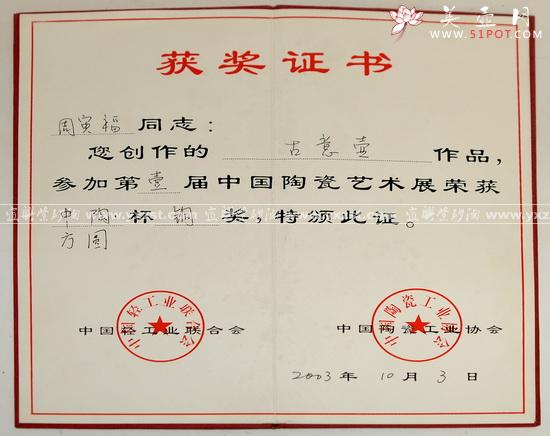 美壶网
www.51POT.COM
获奖证书
周寅福 同志：
您创作的 古意壶 作品，
参加第壹届中国陶瓷艺术展荣获
中陶 杯 铜 奖，特颁此证。
方圆
中国轻工业联合会 中国陶瓷工业协会
中国轻工业联合会
中国陶瓷工业协会
2003 年 10 月 3 日